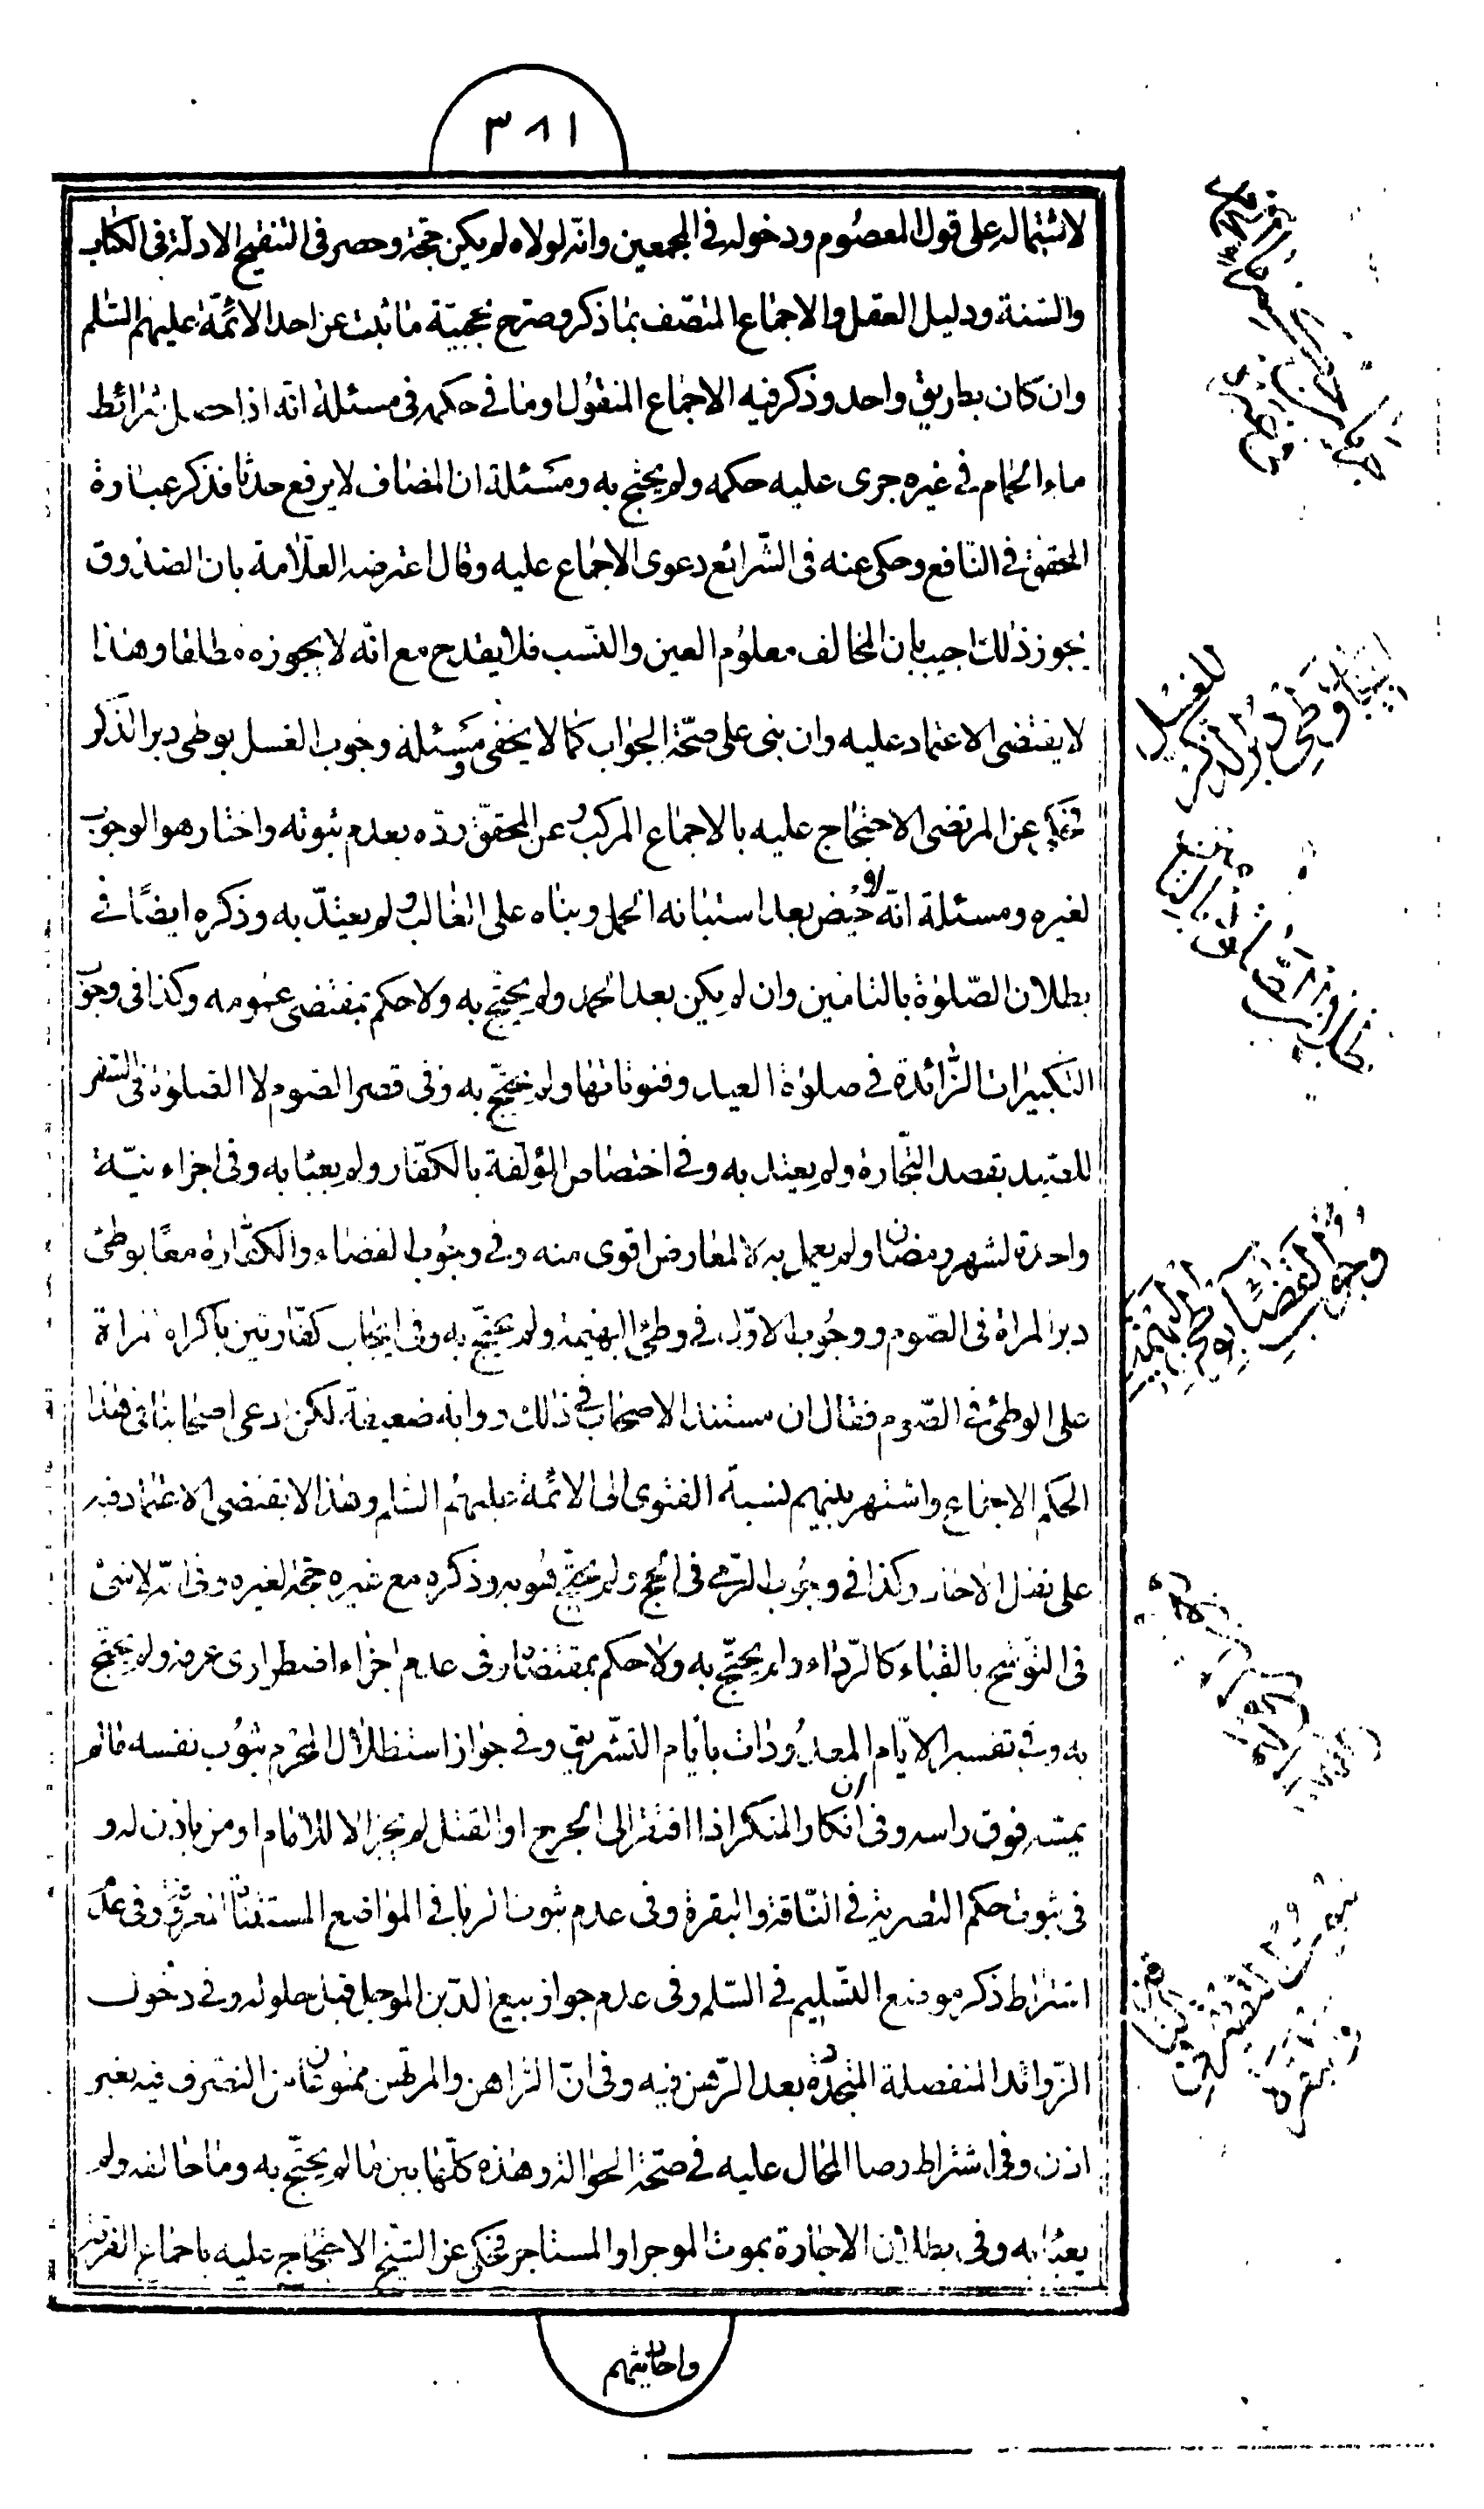 ٣٨١
لاشتماله على قول المعصوم ودخوله في المجمعين وانه لولاه لم يكن حجة وحصر في التنقيح الادلة في الكتاب
والسنة ودليل العقل والاجماع المتصف بما ذكر وصرح بحجية ما ثبت عن احد الائمة عليهم السلم
وان كان بطريق واحد وذكر فيه الاجماع المنقول او ما في حكمه في مسئلة انه اذا حصل شرائط
ماء الحمام في غيره جرى عليه حكمه ولم يحتج به ومسئلة ان المضاف لا يرفع حدثا فذكر عبارة
المحقق في النافع وحكى عنه في الشرائع دعوى الاجماع عليه وقال اعترضه العلامة بان الصدوق
يجوز ذلك اجيب بان المخالف معلوم العين والنسب فلا يقدح مع انه لا يجوزه مطلقا وهذا
لا يقتضى الاعتماد عليه وان بنى على صحة الجواب كما لا يخفى ومسئلة وجوب الغسل بوطى دبر الذكر
فحكى عن المرتضى الاحتجاج عليه بالاجماع المركب وعن المحقق رده بعدم ثبوته واختار هو الوجوب
لغيره ومسئلة انه لا حيض بعد استبانة الحمل وبناه على الغالب ولم يعتد به وذكره ايضا في
بطلان الصلوة بالتامين وان لم يكن بعد الحمد ولم يحتج به ولا حكم بمقتضى عمومه وكذا في وجوب
التكبيرات الزائدة في صلوة العيد وقنوتاتها ولم يحتج به وفي قصر الصوم لا الصلوة في السفر
للصيد بقصد التجارة ولم يعتد به وفي اختصاص المؤلفة بالكفار ولم يعبا به وفي اجزاء نية
واحدة لشهر رمضان ولم يعمل به لا لمعارض اقوى منه وفي وجوب القضاء والكفارة معا بوطئ
دبر المراة في الصوم ووجوب الاول في وطئ البهيمة ولم يحتج به وفي ايجاب كفارتين باكراه المراة
على الوطئ في الصوم فقال ان مستند الاصحاب في ذلك رواية ضعيفة لكن ادعى اصحابنا في هذا
الحكم الاجماع واشتهر بينهم نسبة الفتوى الى الائمة عليهم السلم وهذا لا يقتضى الاعتماد فيه
على نقل الاجماع وكذا في وجوب الرمى في الحج ولم يحتج به وذكره مع غيره حجة لغيره وفي انه لا شئ
في التوشح بالقباء كالرداء ولم يحتج به ولا حكم بمقتضاه وفي عدم اجزاء اضطرارى عرفه ولم يحتج
به وفي تفسير الايام المعدودات بايام التشريق وفي جواز استظلال المحرم بثوب نفسه ما لم
يمسه فوق راسه وفي ان انكار المنكر اذا افتقر الى الجرح او القتل لم يجز الا للامام او من ياذن له و
في ثبوت حكم التصرية في الناقة والبقرة وفي عدم ثبوت الربا في المواضع المستثناة المعروفة وفي عدم
اشتراط ذكر موضع التسليم في السلم وفي عدم جواز بيع الدين المؤجل قبل حلوله وفي دخول
الزوائد المنفصلة المتجددة بعد الرهن فيه وفي ان الراهن والمرتهن ممنوعان من التصرف فيه بغير
اذن وفي اشتراط رضا المحال عليه في صحة الحوالة وهذه كلها بين ما لم يحتج به وما خالفه ولم
يعبا به وفي بطلان الاجارة بموت الموجر او المستاجر فحكى عن الشيخ الاحتجاج عليه باجماع الفرقة
واحاديثهم
ايضا وطى دبر الذكر
للغسل
وجوب القضاء
بوطى البهيمة